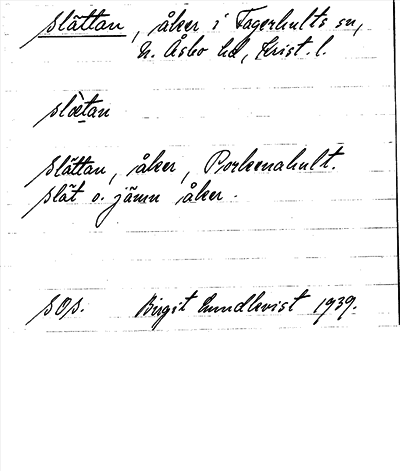 Slättan, åker i Fagerhults sn,
N. Åsbo hd, Krist. l.
slæ̀tan
Slättan, åker, Porkenahult.
slät o. jämn åker.
SOs. Birgit Lundkvist 1939.